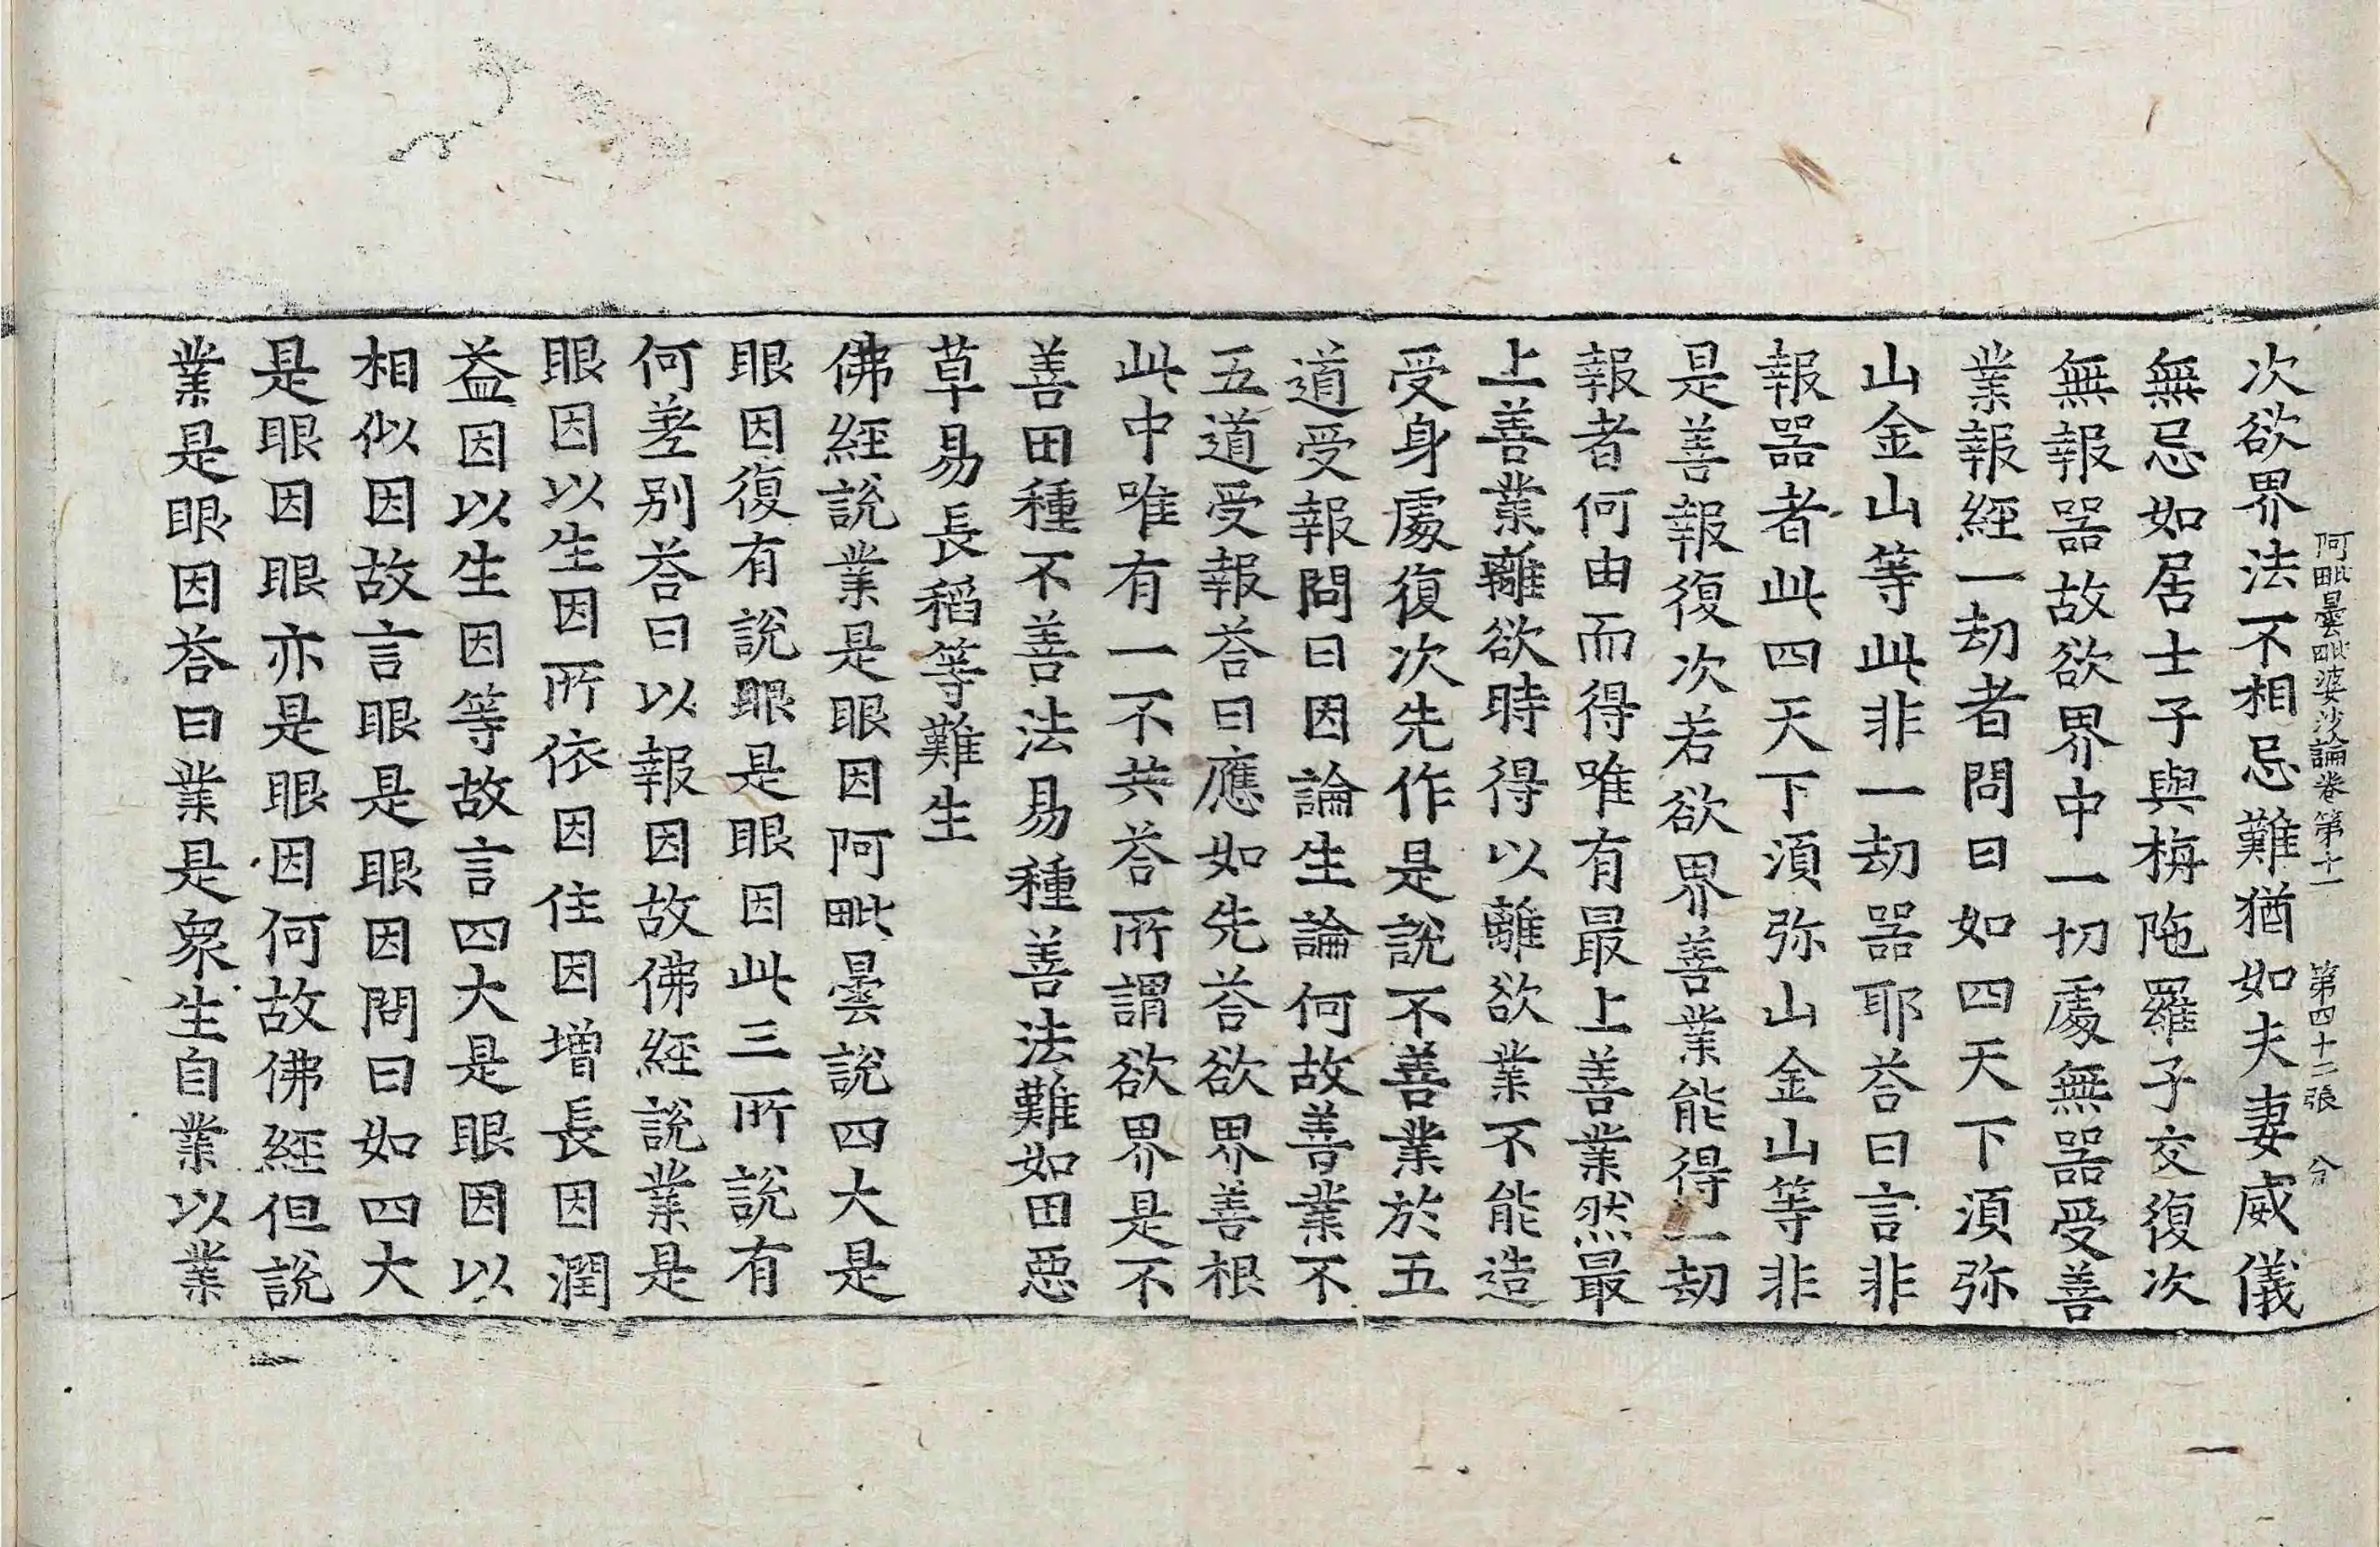 阿毗曇毗婆沙論卷第十一 第四十二張 分
次欲界法不相忌難猶如夫妻威儀
無忌如居士子與栴陁羅子交復次
無報器故欲界中一切處無器受善
業報經一劫者問曰如四天下湏弥
山金山等此非一劫器耶荅曰言非
報器者此四天下湏弥山金山等非
是善報復次若欲界善業能得一劫
報者何由而得唯有最上善業然最
上善業離欲時得以離欲業不能造
受身處復次先作是說不善業於五
道受報問曰因論生論何故善業不
五道受報荅曰應如先荅欲界善根
此中唯有一不共荅所謂欲界是不
善田種不善法易種善法難如田惡
草易長稻等難生
佛經說業是眼因阿毗曇說四大是
眼因復有說眼是眼因此三所說有
何差别荅曰以報因故佛經說業是
眼因以生因所依因住因增長因潤
益因以生因等故言四大是眼因以
相似因故言眼是眼因問曰如四大
是眼因眼亦是眼因何故佛經但說
業是眼因荅曰業是衆生自業以業